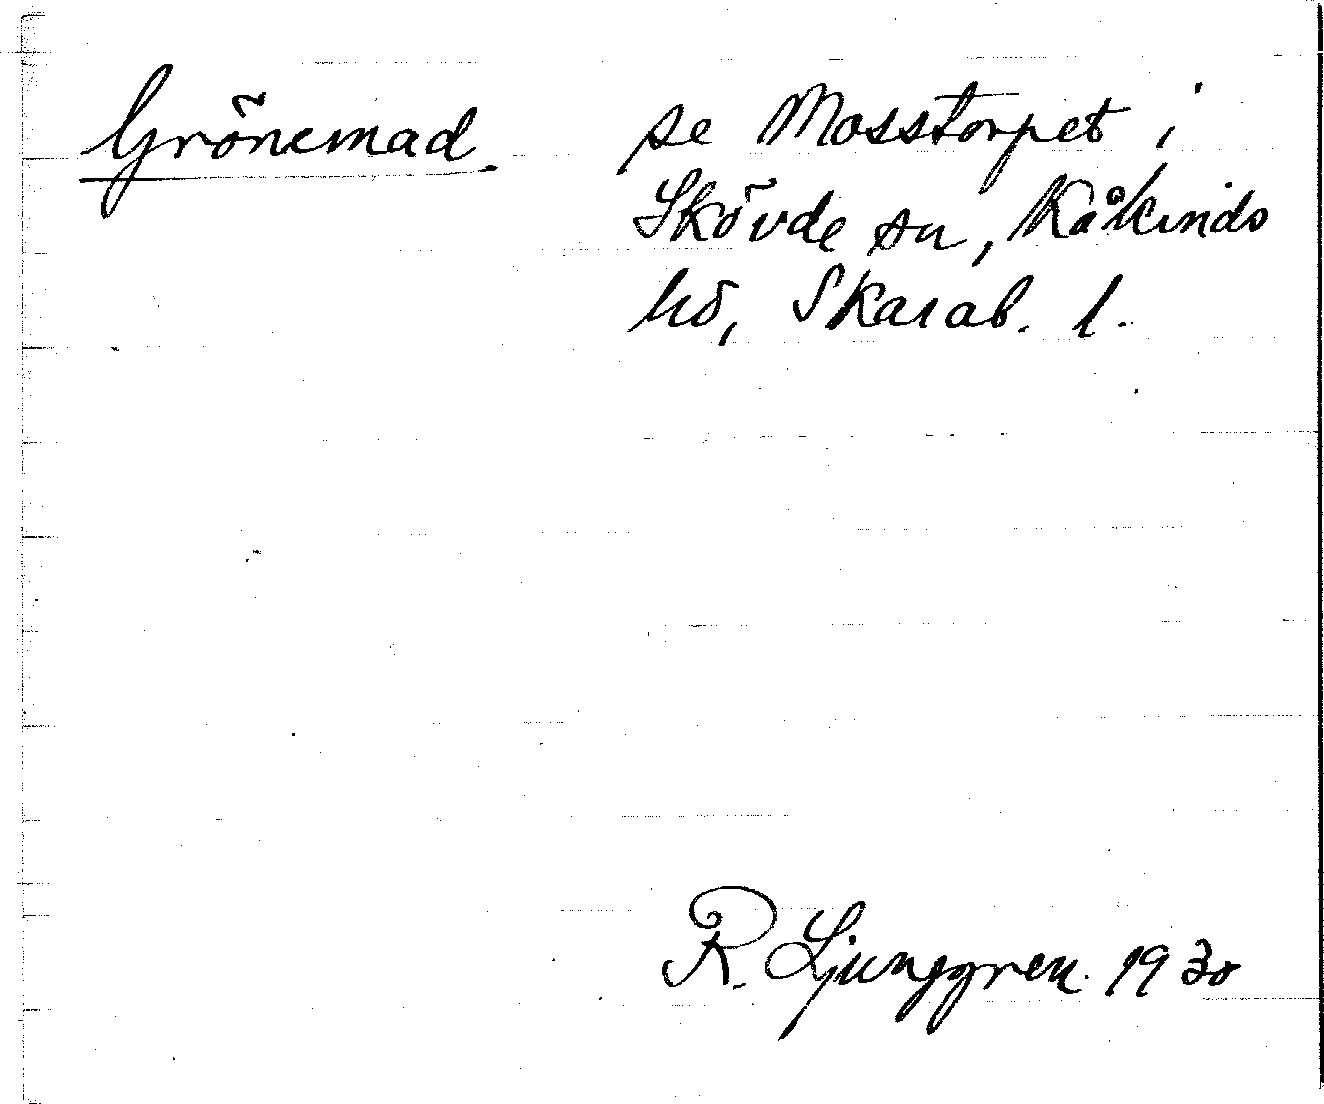 Grönemad. se Mosstorpet i
Skövde sn, Kåkinds
hd, Skarab. l.
R. Ljunggren. 1930